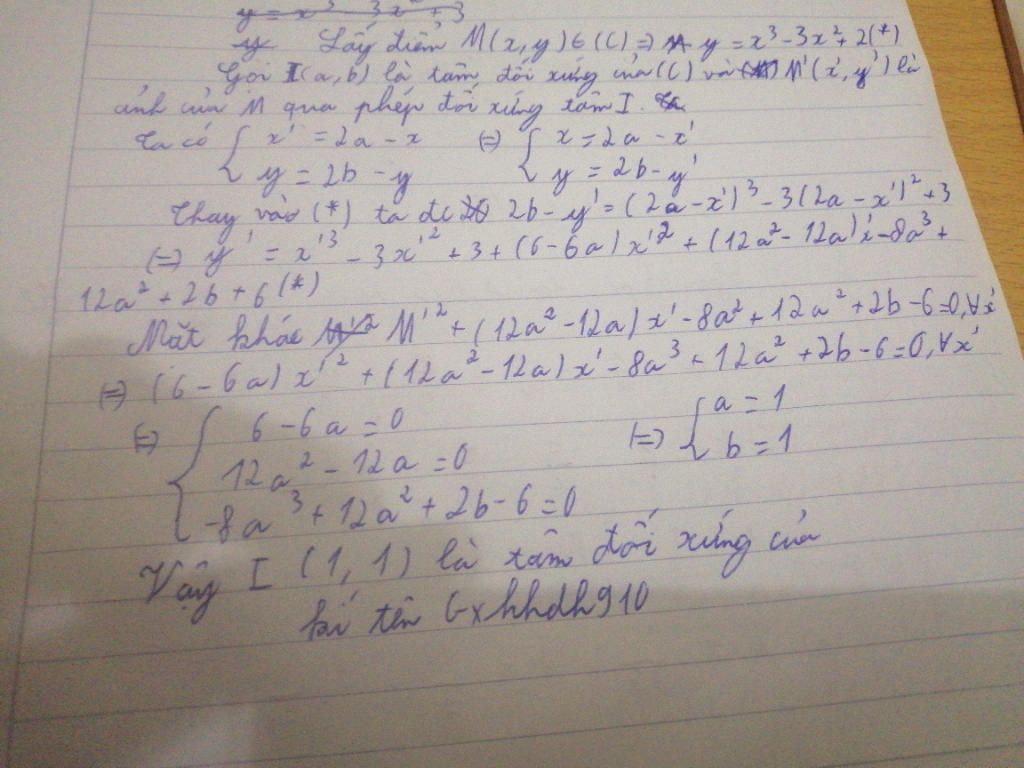 y = x³ - 3x² + 3
y Lấy điểm M(x,y) ∈ (C) ⇒ y = x³ - 3x² + 2 (*)
Gọi I(a,b) là tâm đối xứng của (C) và M'(x', y') là
ảnh của M qua phép đối xứng tâm I.
Ta có { x' = 2a - x ⇔ { x = 2a - x'
y = 2b - y y = 2b - y'
Thay vào (*) ta đc 2b - y' = (2a - x')³ - 3(2a - x')² + 3
⇔ y' = x'³ - 3x'² + 3 + (6 - 6a)x'² + (12a² - 12a)x' - 8a³ +
12a² + 2b + 6 (*)
Mặt khác M'² + (12a² - 12a)x' - 8a² + 12a² + 2b - 6 = 0, ∀x'
⇔ (6 - 6a)x'² + (12a² - 12a)x' - 8a³ + 12a² + 2b - 6 = 0, ∀x'
⇔ { 6 - 6a = 0 ⇔ { a = 1
12a² - 12a = 0 b = 1
-8a³ + 12a² + 2b - 6 = 0
Vậy I (1, 1) là tâm đối xứng của
kí tên Gxhhdh910